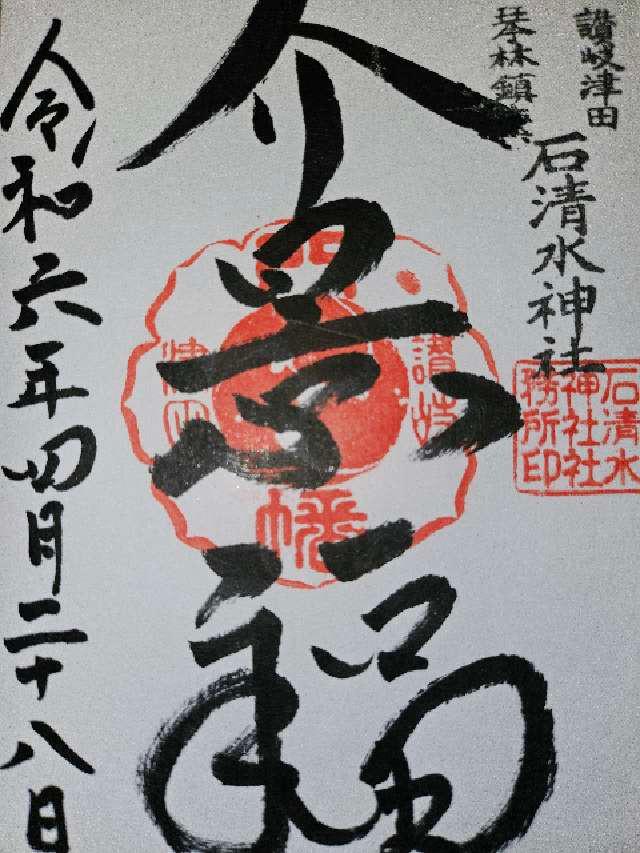 讃岐津田
琴林鎮座
石清水神社
石清水
神社社
務所印
介景福
讃岐
津田
幡
令和六年四月二十八日